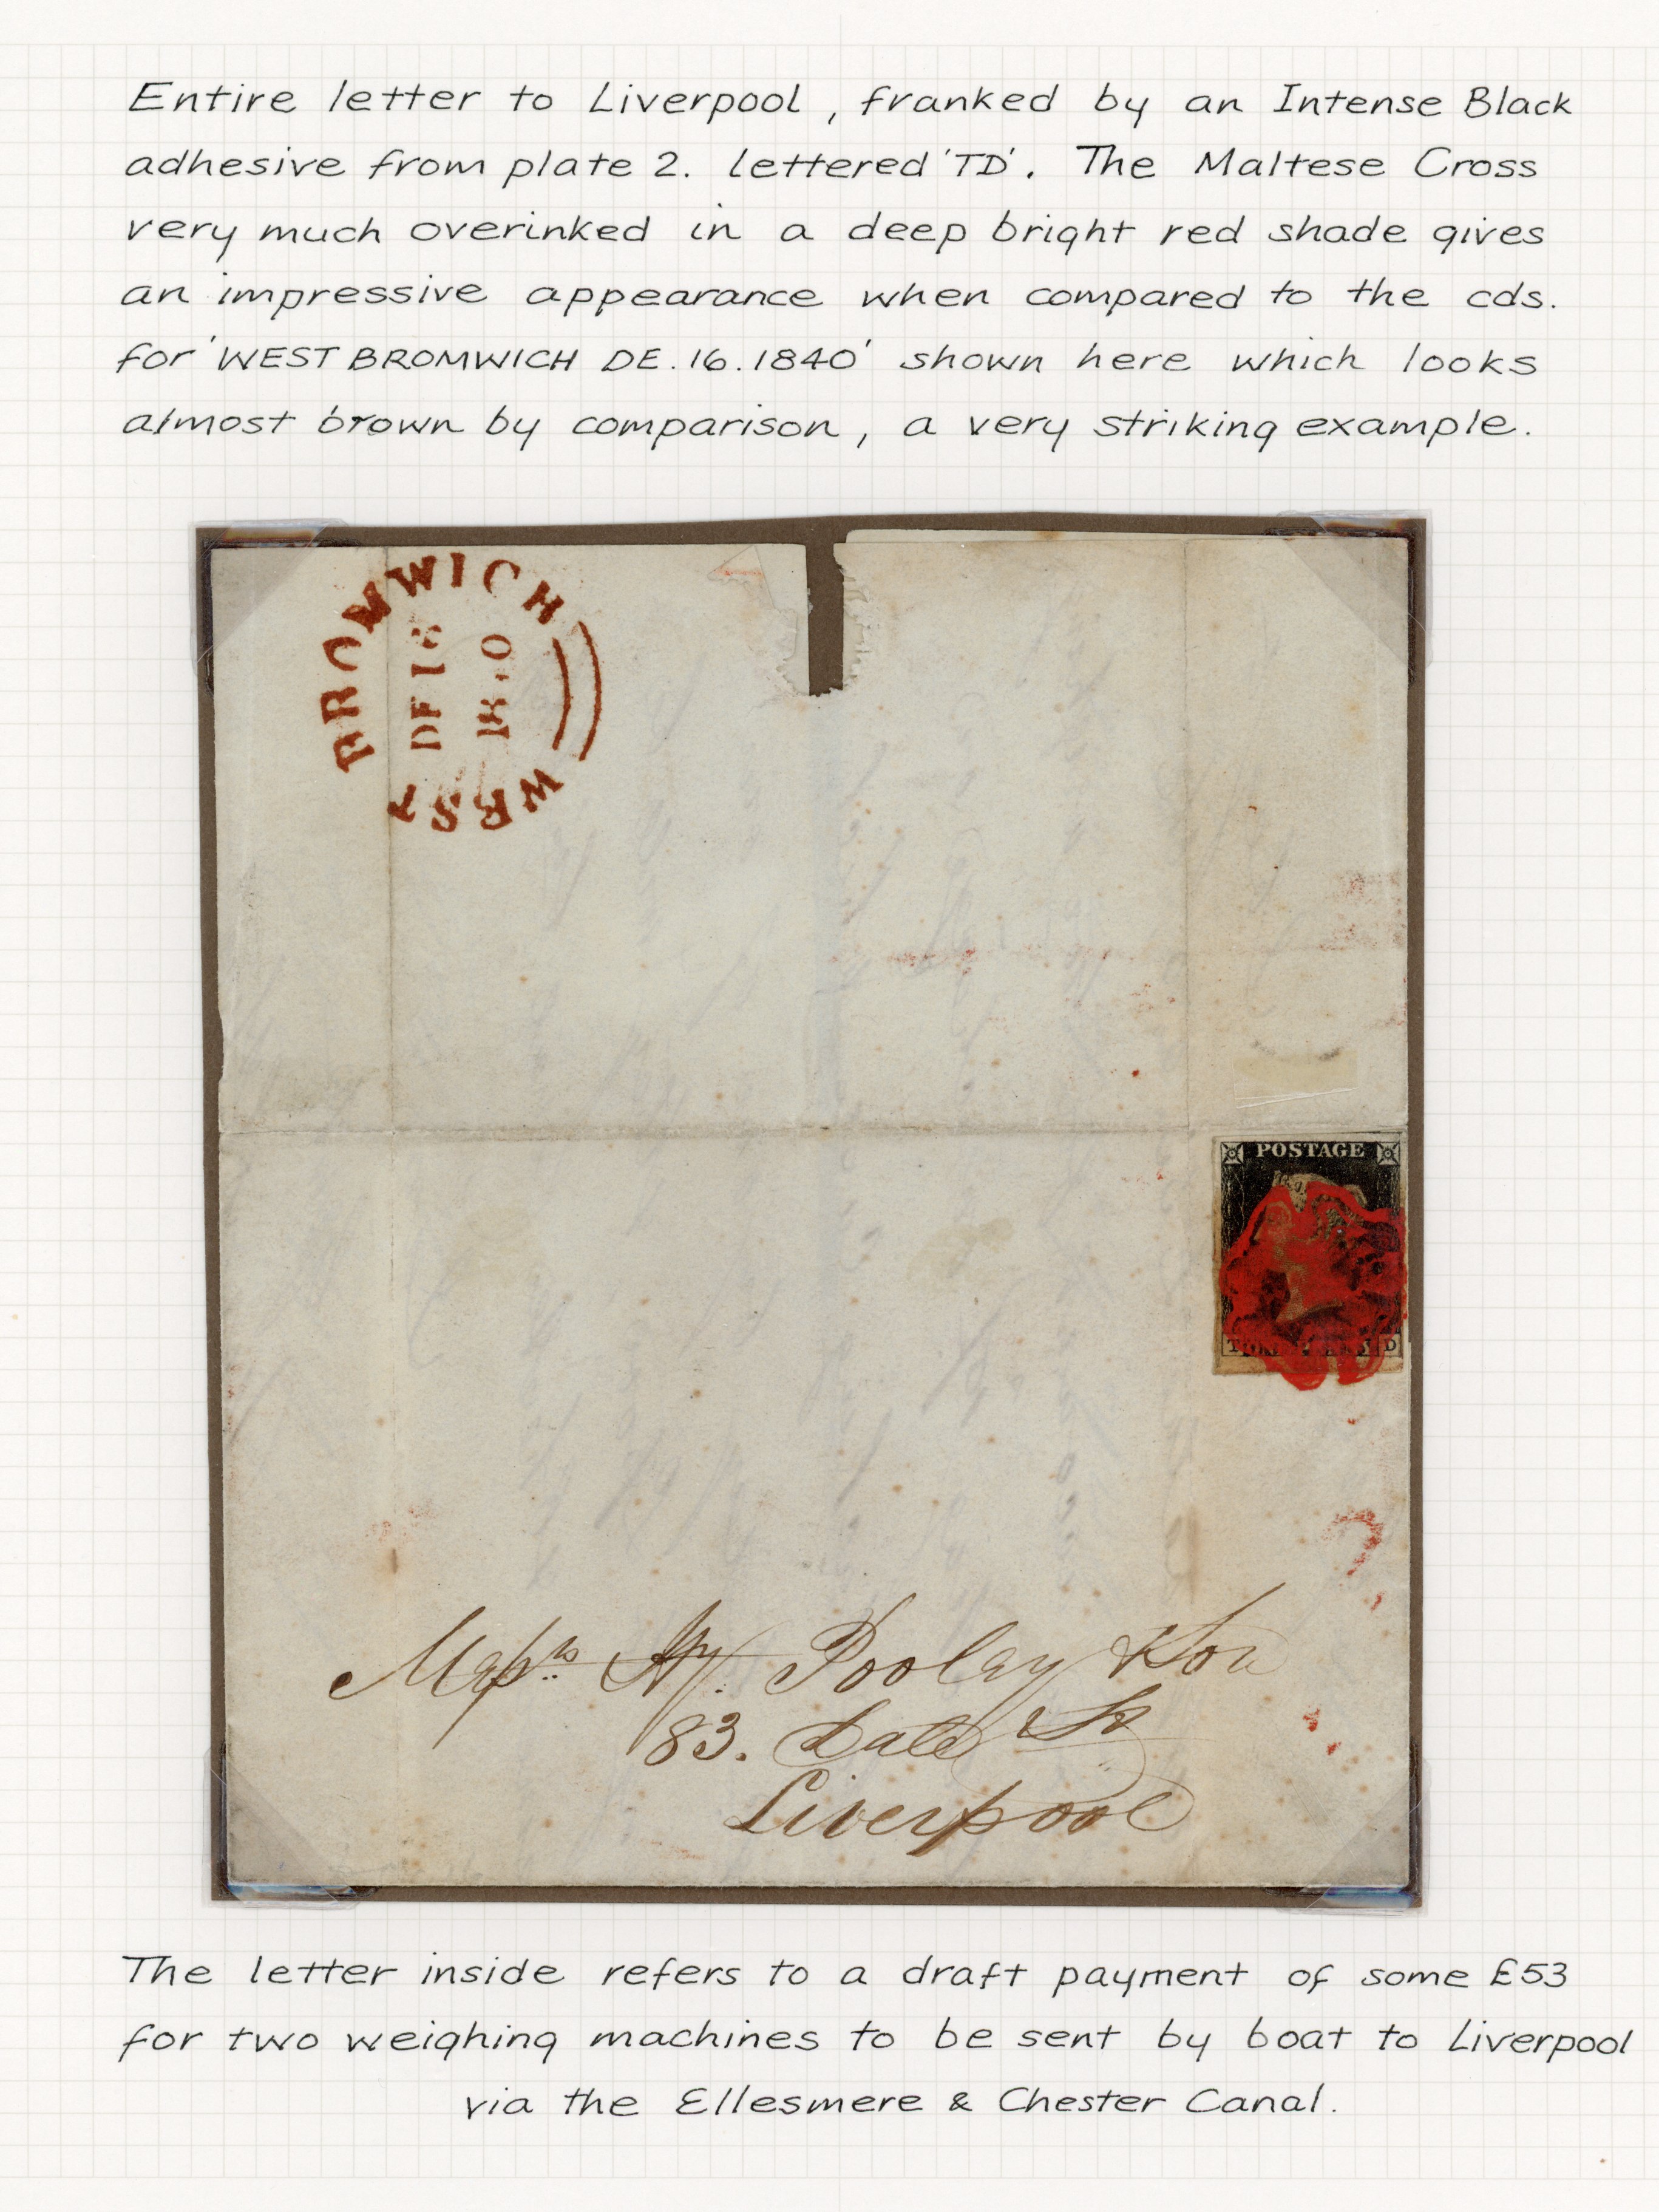 Entire letter to Liverpool, franked by an Intense Black
adhesive from plate 2. lettered 'TD'. The Maltese Cross
very much overinked in a deep bright red shade gives
an impressive appearance when compared to the cds.
for 'WEST BROMWICH DE.16.1840' shown here which looks
almost brown by comparison, a very striking example.
WEST BROMWICH
DE 16
1840
POSTAGE
T D
Messrs Hy. Pooley & Son
83. Dale St
Liverpool
The letter inside refers to a draft payment of some £53
for two weighing machines to be sent by boat to Liverpool
via the Ellesmere & Chester Canal.